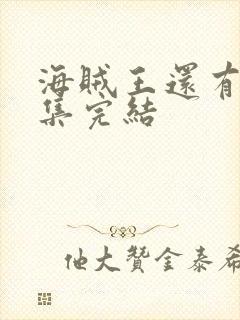 海賊王還有
集完結
他大贊金泰希